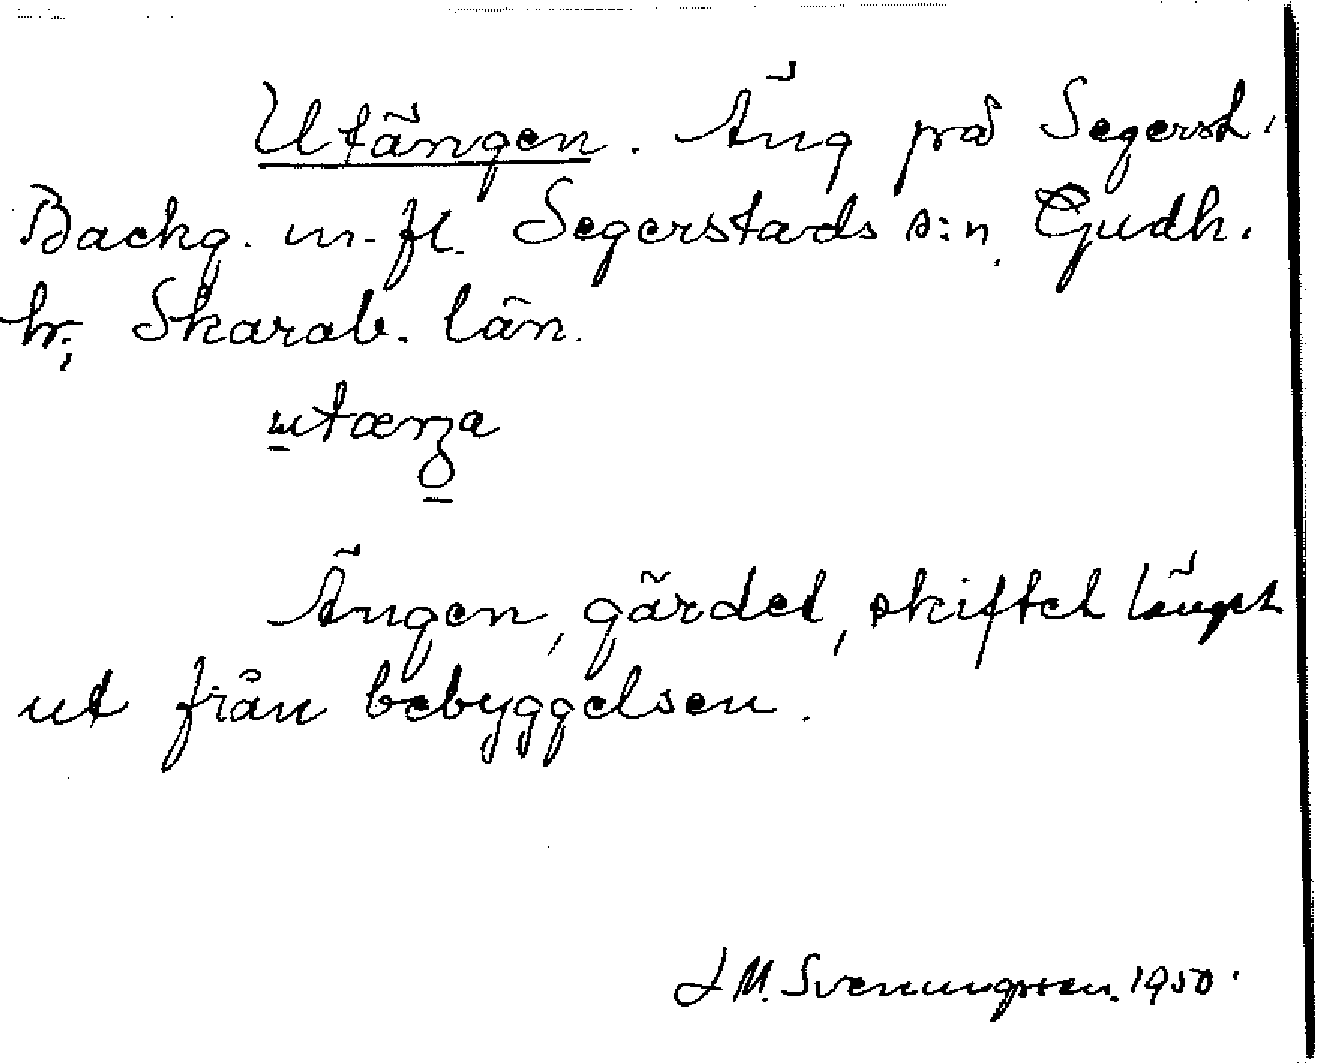 Utängen. Äng på Segerst.
Backg. m. fl. Segerstads s:n, Gudh.
hr; Skarab. län.
utæŋa
Ängen, gärdet, skiftet längst
ut från bebyggelsen.
J M. Svenungsson. 1950.